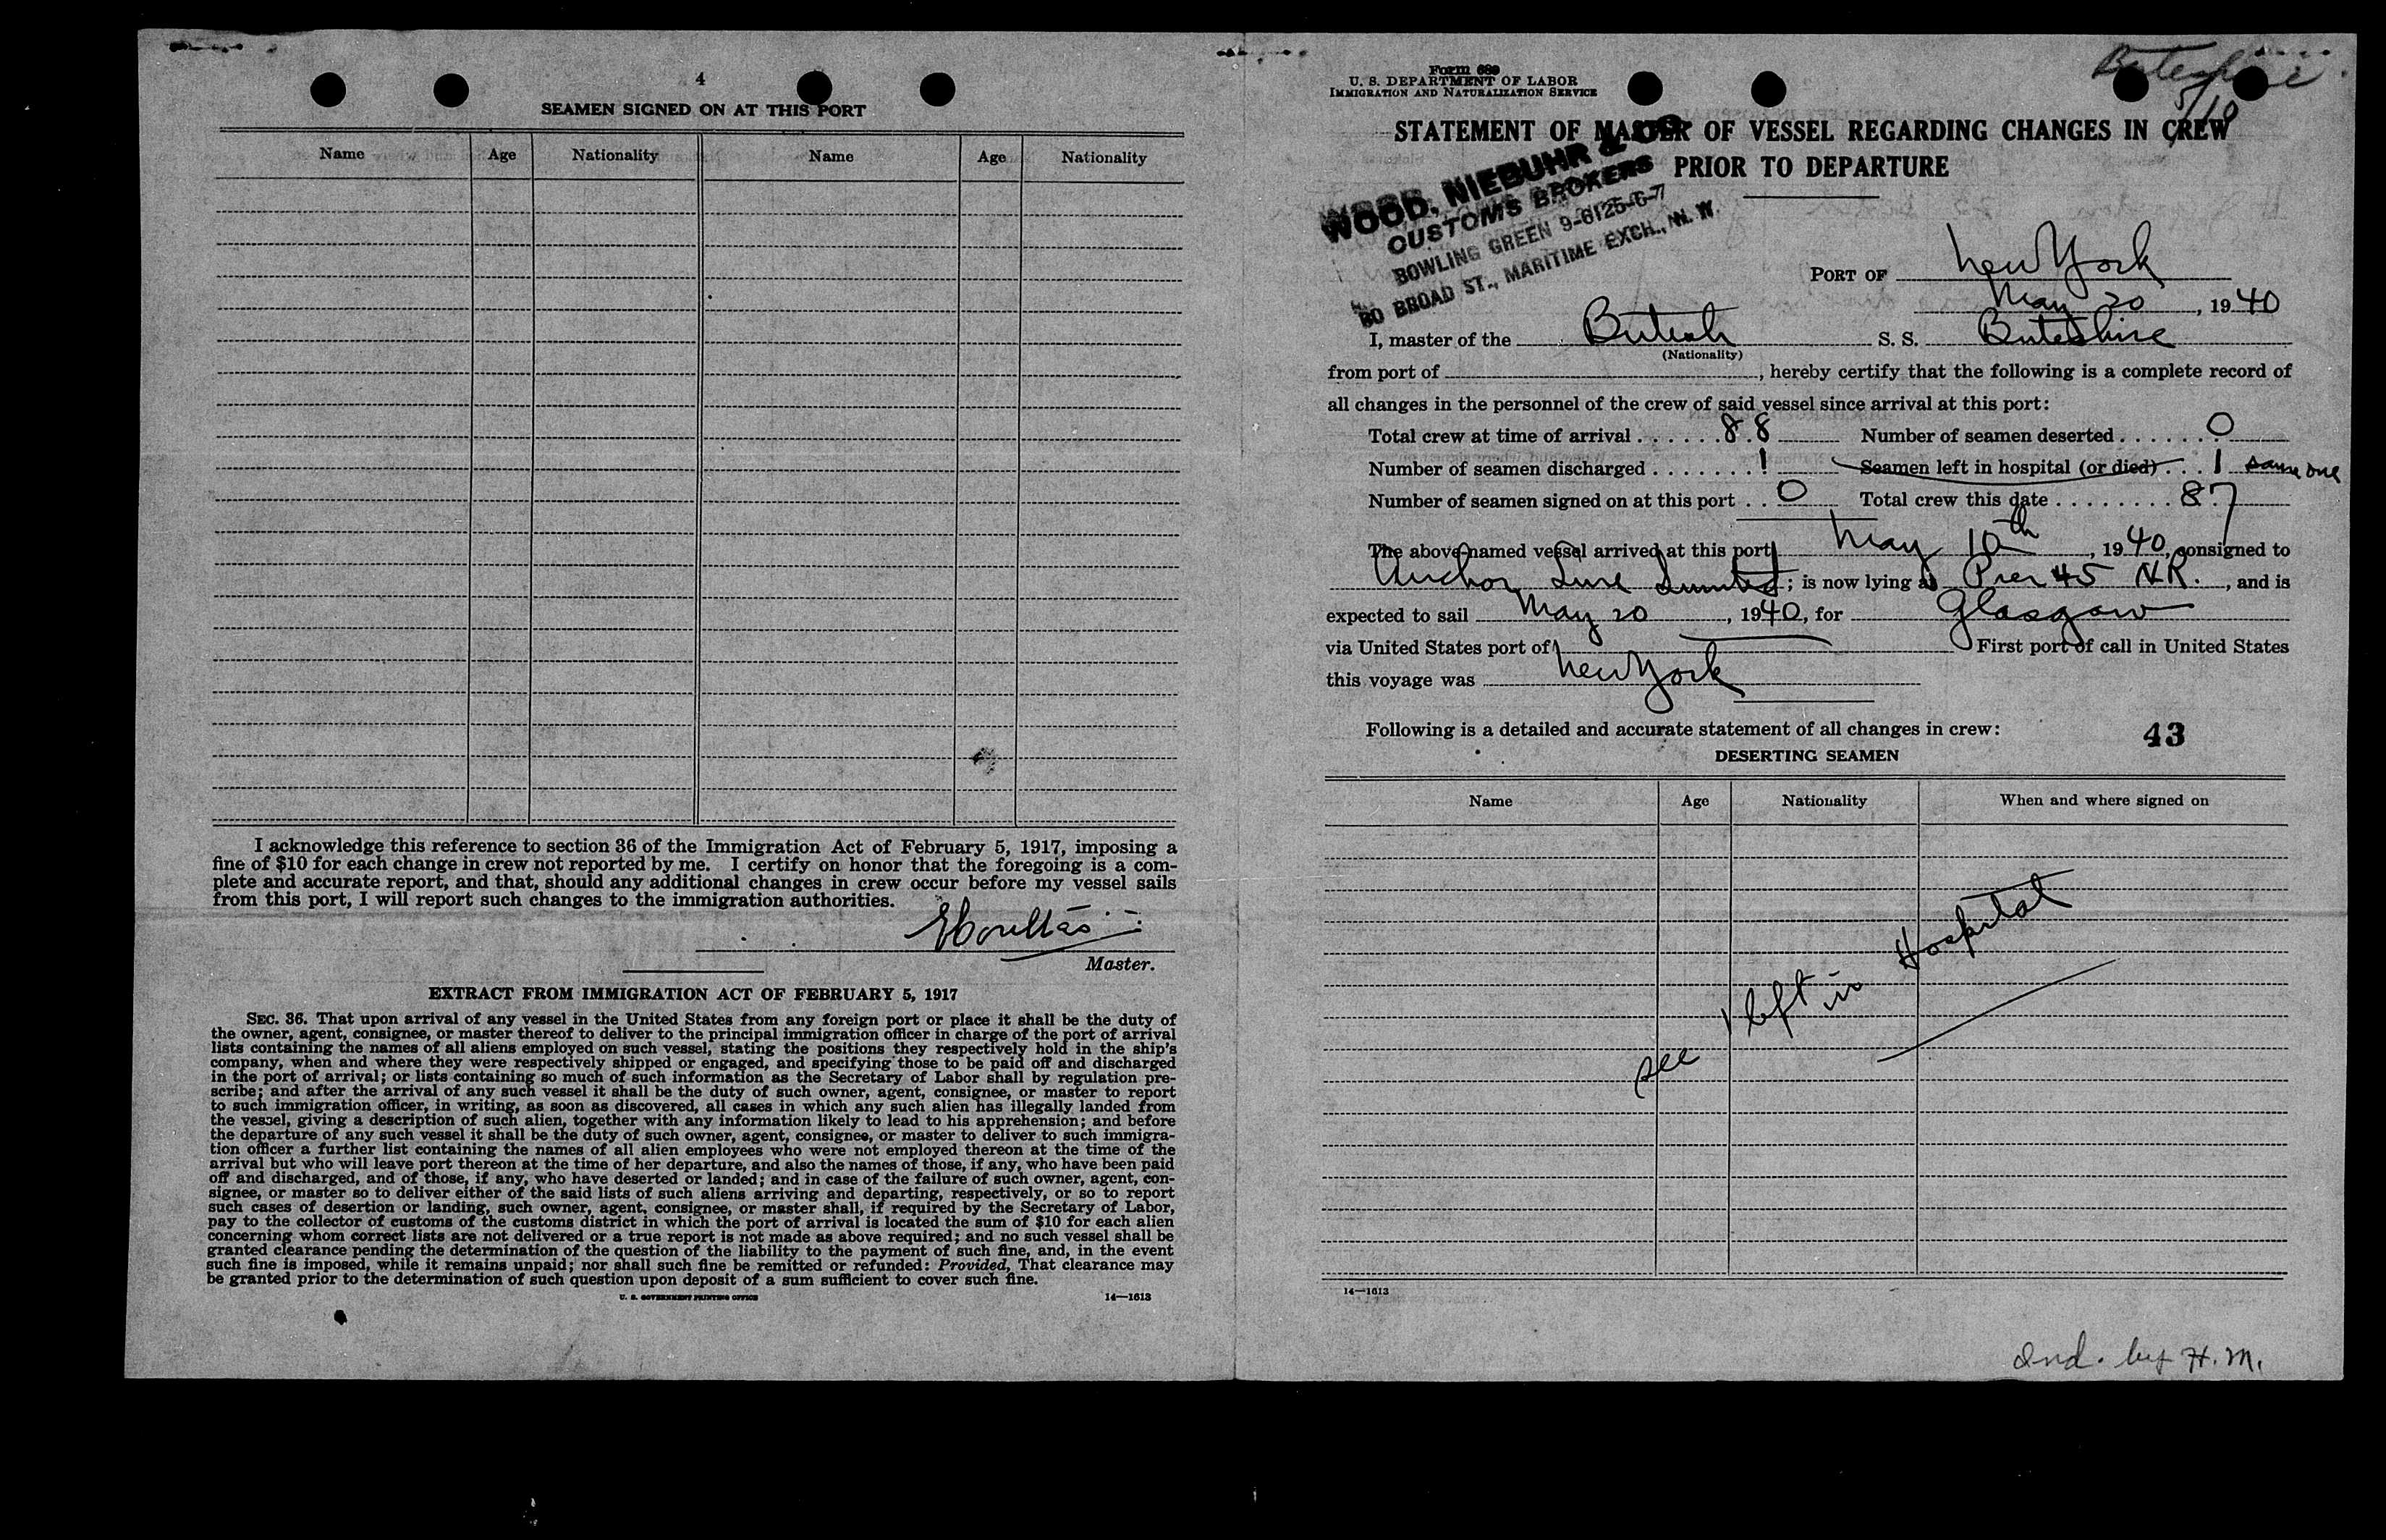 4
SEAMEN SIGNED ON AT THIS PORT
Name Age Nationality Name Age Nationality
I acknowledge this reference to section 36 of the Immigration Act of February 5, 1917, imposing a
fine of $10 for each change in crew not reported by me. I certify on honor that the foregoing is a com-
plete and accurate report, and that, should any additional changes in crew occur before my vessel sails
from this port, I will report such changes to the immigration authorities.
Master.
EXTRACT FROM IMMIGRATION ACT OF FEBRUARY 5, 1917
SEC. 36. That upon arrival of any vessel in the United States from any foreign port or place it shall be the duty of
the owner, agent, consignee, or master thereof to deliver to the principal immigration officer in charge of the port of arrival
lists containing the names of all aliens employed on such vessel, stating the positions they respectively hold in the ship's
company, when and where they were respectively shipped or engaged, and specifying those to be paid off and discharged
in the port of arrival; or lists containing so much of such information as the Secretary of Labor shall by regulation pre-
scribe; and after the arrival of any such vessel it shall be the duty of such owner, agent, consignee, or master to report
to such immigration officer, in writing, as soon as discovered, all cases in which any such alien has illegally landed from
the vessel, giving a description of such alien, together with any information likely to lead to his apprehension; and before
the departure of any such vessel it shall be the duty of such owner, agent, consignee, or master to deliver to such immigra-
tion officer a further list containing the names of all alien employees who were not employed thereon at the time of the
arrival but who will leave port thereon at the time of her departure, and also the names of those, if any, who have been paid
off and discharged, and of those, if any, who have deserted or landed; and in case of the failure of such owner, agent, con-
signee, or master so to deliver either of the said lists of such aliens arriving and departing, respectively, or so to report
such cases of desertion or landing, such owner, agent, consignee, or master shall, if required by the Secretary of Labor,
pay to the collector of customs of the customs district in which the port of arrival is located the sum of $10 for each alien
concerning whom correct lists are not delivered or a true report is not made as above required; and no such vessel shall be
granted clearance pending the determination of the question of the liability to the payment of such fine, and, in the event
such fine is imposed, while it remains unpaid; nor shall such fine be remitted or refunded: Provided, That clearance may
be granted prior to the determination of such question upon deposit of a sum sufficient to cover such fine.
U. S. GOVERNMENT PRINTING OFFICE 14—1613
Buteshire
5/10
Form 689
U. S. DEPARTMENT OF LABOR
IMMIGRATION AND NATURALIZATION SERVICE
STATEMENT OF MASTER OF VESSEL REGARDING CHANGES IN CREW
PRIOR TO DEPARTURE
WOOD, NIEBUHR & CO
CUSTOMS BROKERS
BOWLING GREEN 9-6125-6-7
80 BROAD ST., MARITIME EXCH., N. Y.
PORT OF New York
May 20, 1940
I, master of the British S. S. Buteshire
(Nationality)
from port of , hereby certify that the following is a complete record of
all changes in the personnel of the crew of said vessel since arrival at this port:
Total crew at time of arrival 88 Number of seamen deserted 0
Number of seamen discharged 1 Seamen left in hospital (or died) 1 same one
Number of seamen signed on at this port 0 Total crew this date 87
The above-named vessel arrived at this port May 10th, 1940, consigned to
Anchor Line Limited; is now lying at Pier 45 N.R., and is
expected to sail May 20, 1940, for Glasgow
via United States port of First port of call in United States
this voyage was New York
Following is a detailed and accurate statement of all changes in crew:
43
DESERTING SEAMEN
Name Age Nationality When and where signed on
see 1 left in Hospital
14—1613
Ind. by H. M.